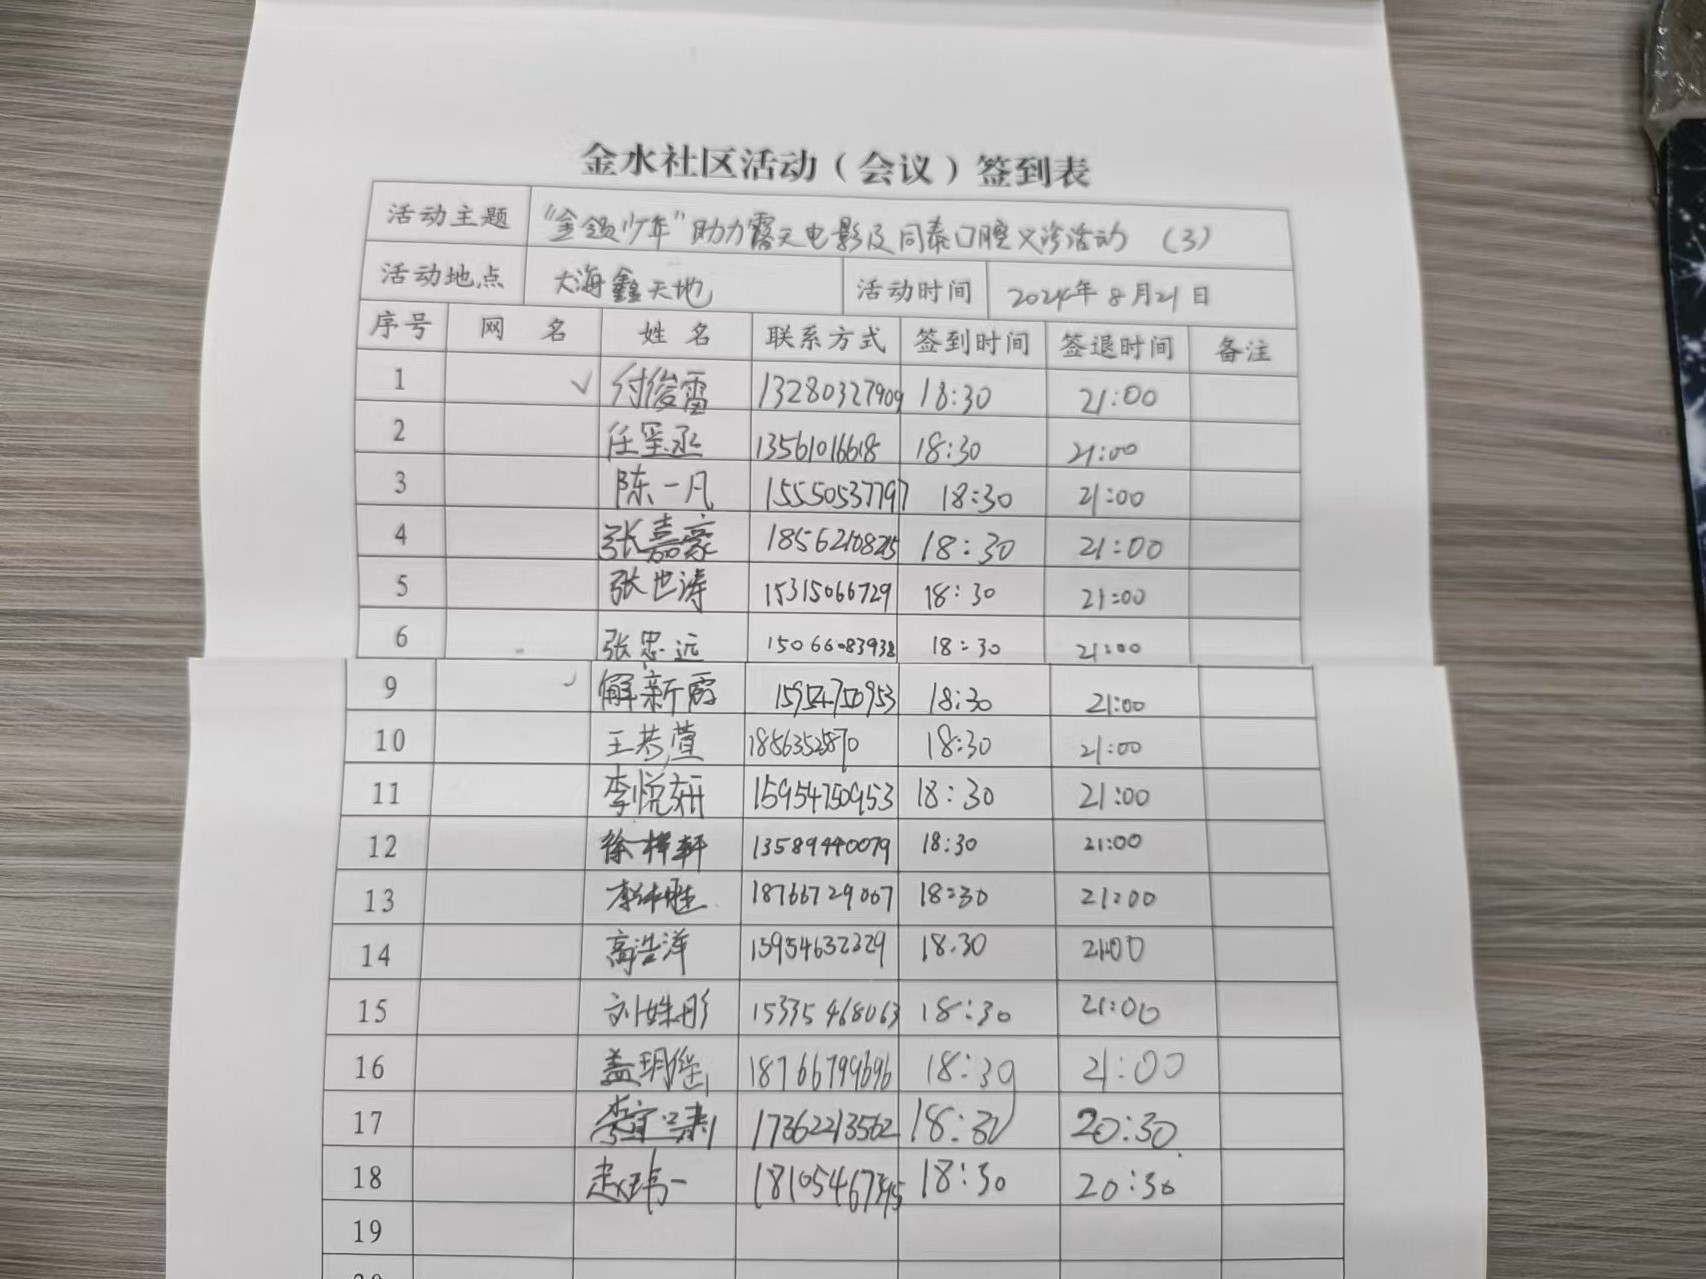 金水社区活动（会议）签到表
活动主题 "金领少年"助力露天电影及同泰口腔义诊活动 （3）
活动地点 大海鑫天地 活动时间 2024年8月21日
序号 网 名 姓 名 联系方式 签到时间 签退时间 备注
1 √ 付俊雷 13280327909 18:30 21:00
2 任玺丞 13561016618 18:30 21:00
3 陈一凡 15550537797 18:30 21:00
4 张嘉豪 18:30 21:00
5 张世涛 15315066729 18:30 21:00
6 张忠远 18:30 21:00
9 解新霞 15954750953 18:30 21:00
10 王 萱 18:30 21:00
11 李悦妍 15954750953 18:30 21:00
12 徐梓轩 13589440079 18:30 21:00
13 18766729067 18:30 21:00
14 高浩洋 15954632229 18:30 21:00
15 刘姝彤 15335468063 18:30 21:00
16 盖玥 18766799696 18:30 21:00
17 李 17362213562 18:30 20:30
18 赵玮一 18:30 20:30
19